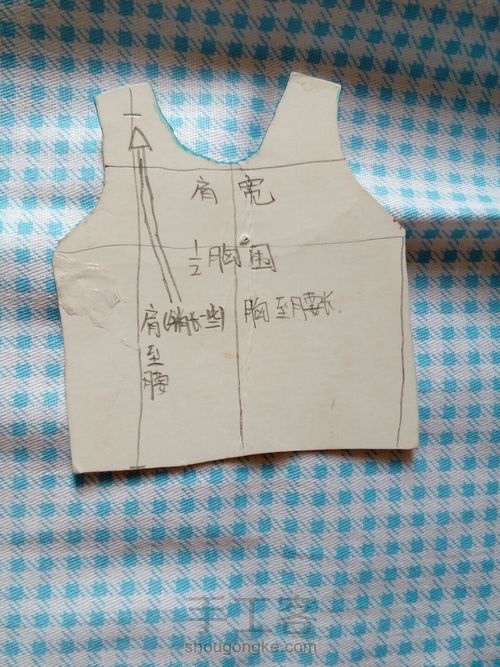 肩宽
1/2胸围
肩(稍长一些)至腰
胸至腰长.
手工客
shougongke.com